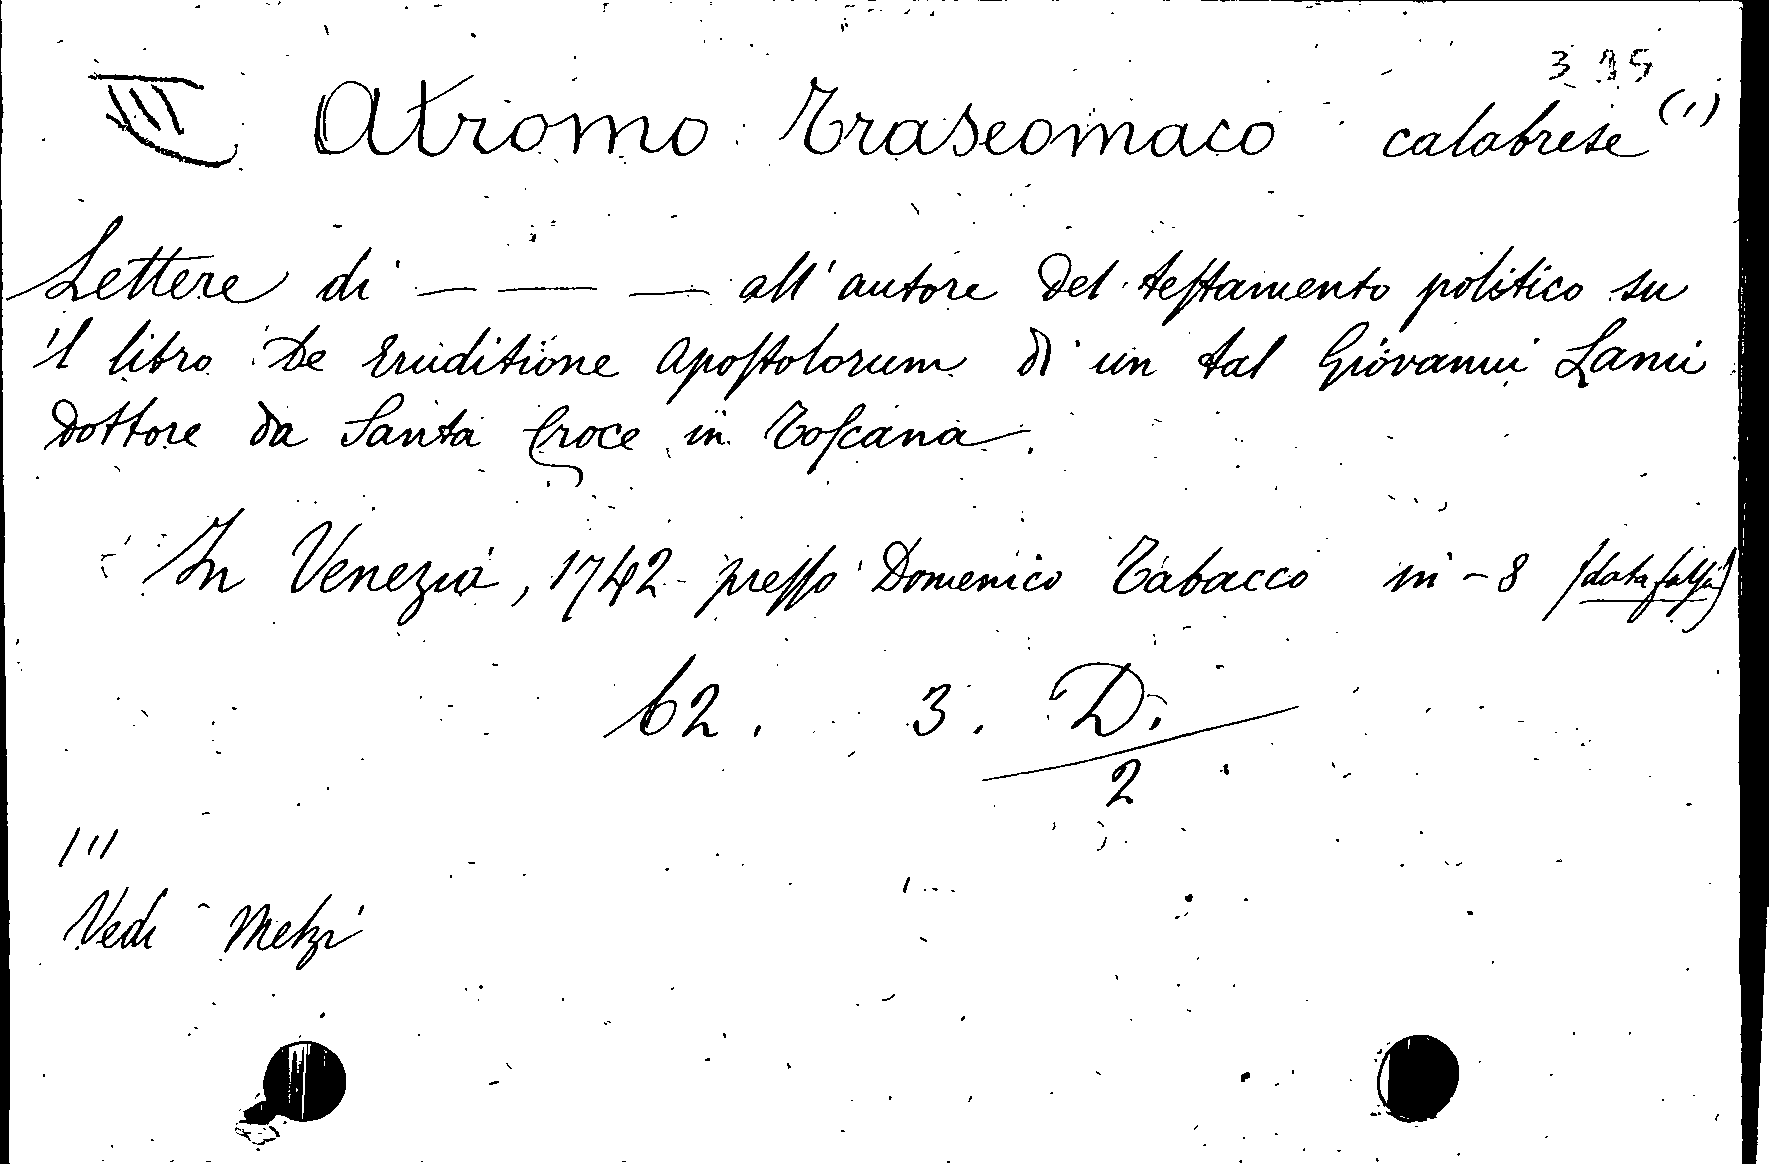 395
III Atromo Traseomaco calabrese (1)
Lettere di — — — all'autore del testamento politico su
il libro De Eruditione Apostolorum di un tal Giovanni Lami
Dottore da Santa Croce in Toscana.
In Venezia, 1742 presso Domenico Tabacco in-8 (data falsa)
62. 3. D.
2
(1)
Vedi Melzi